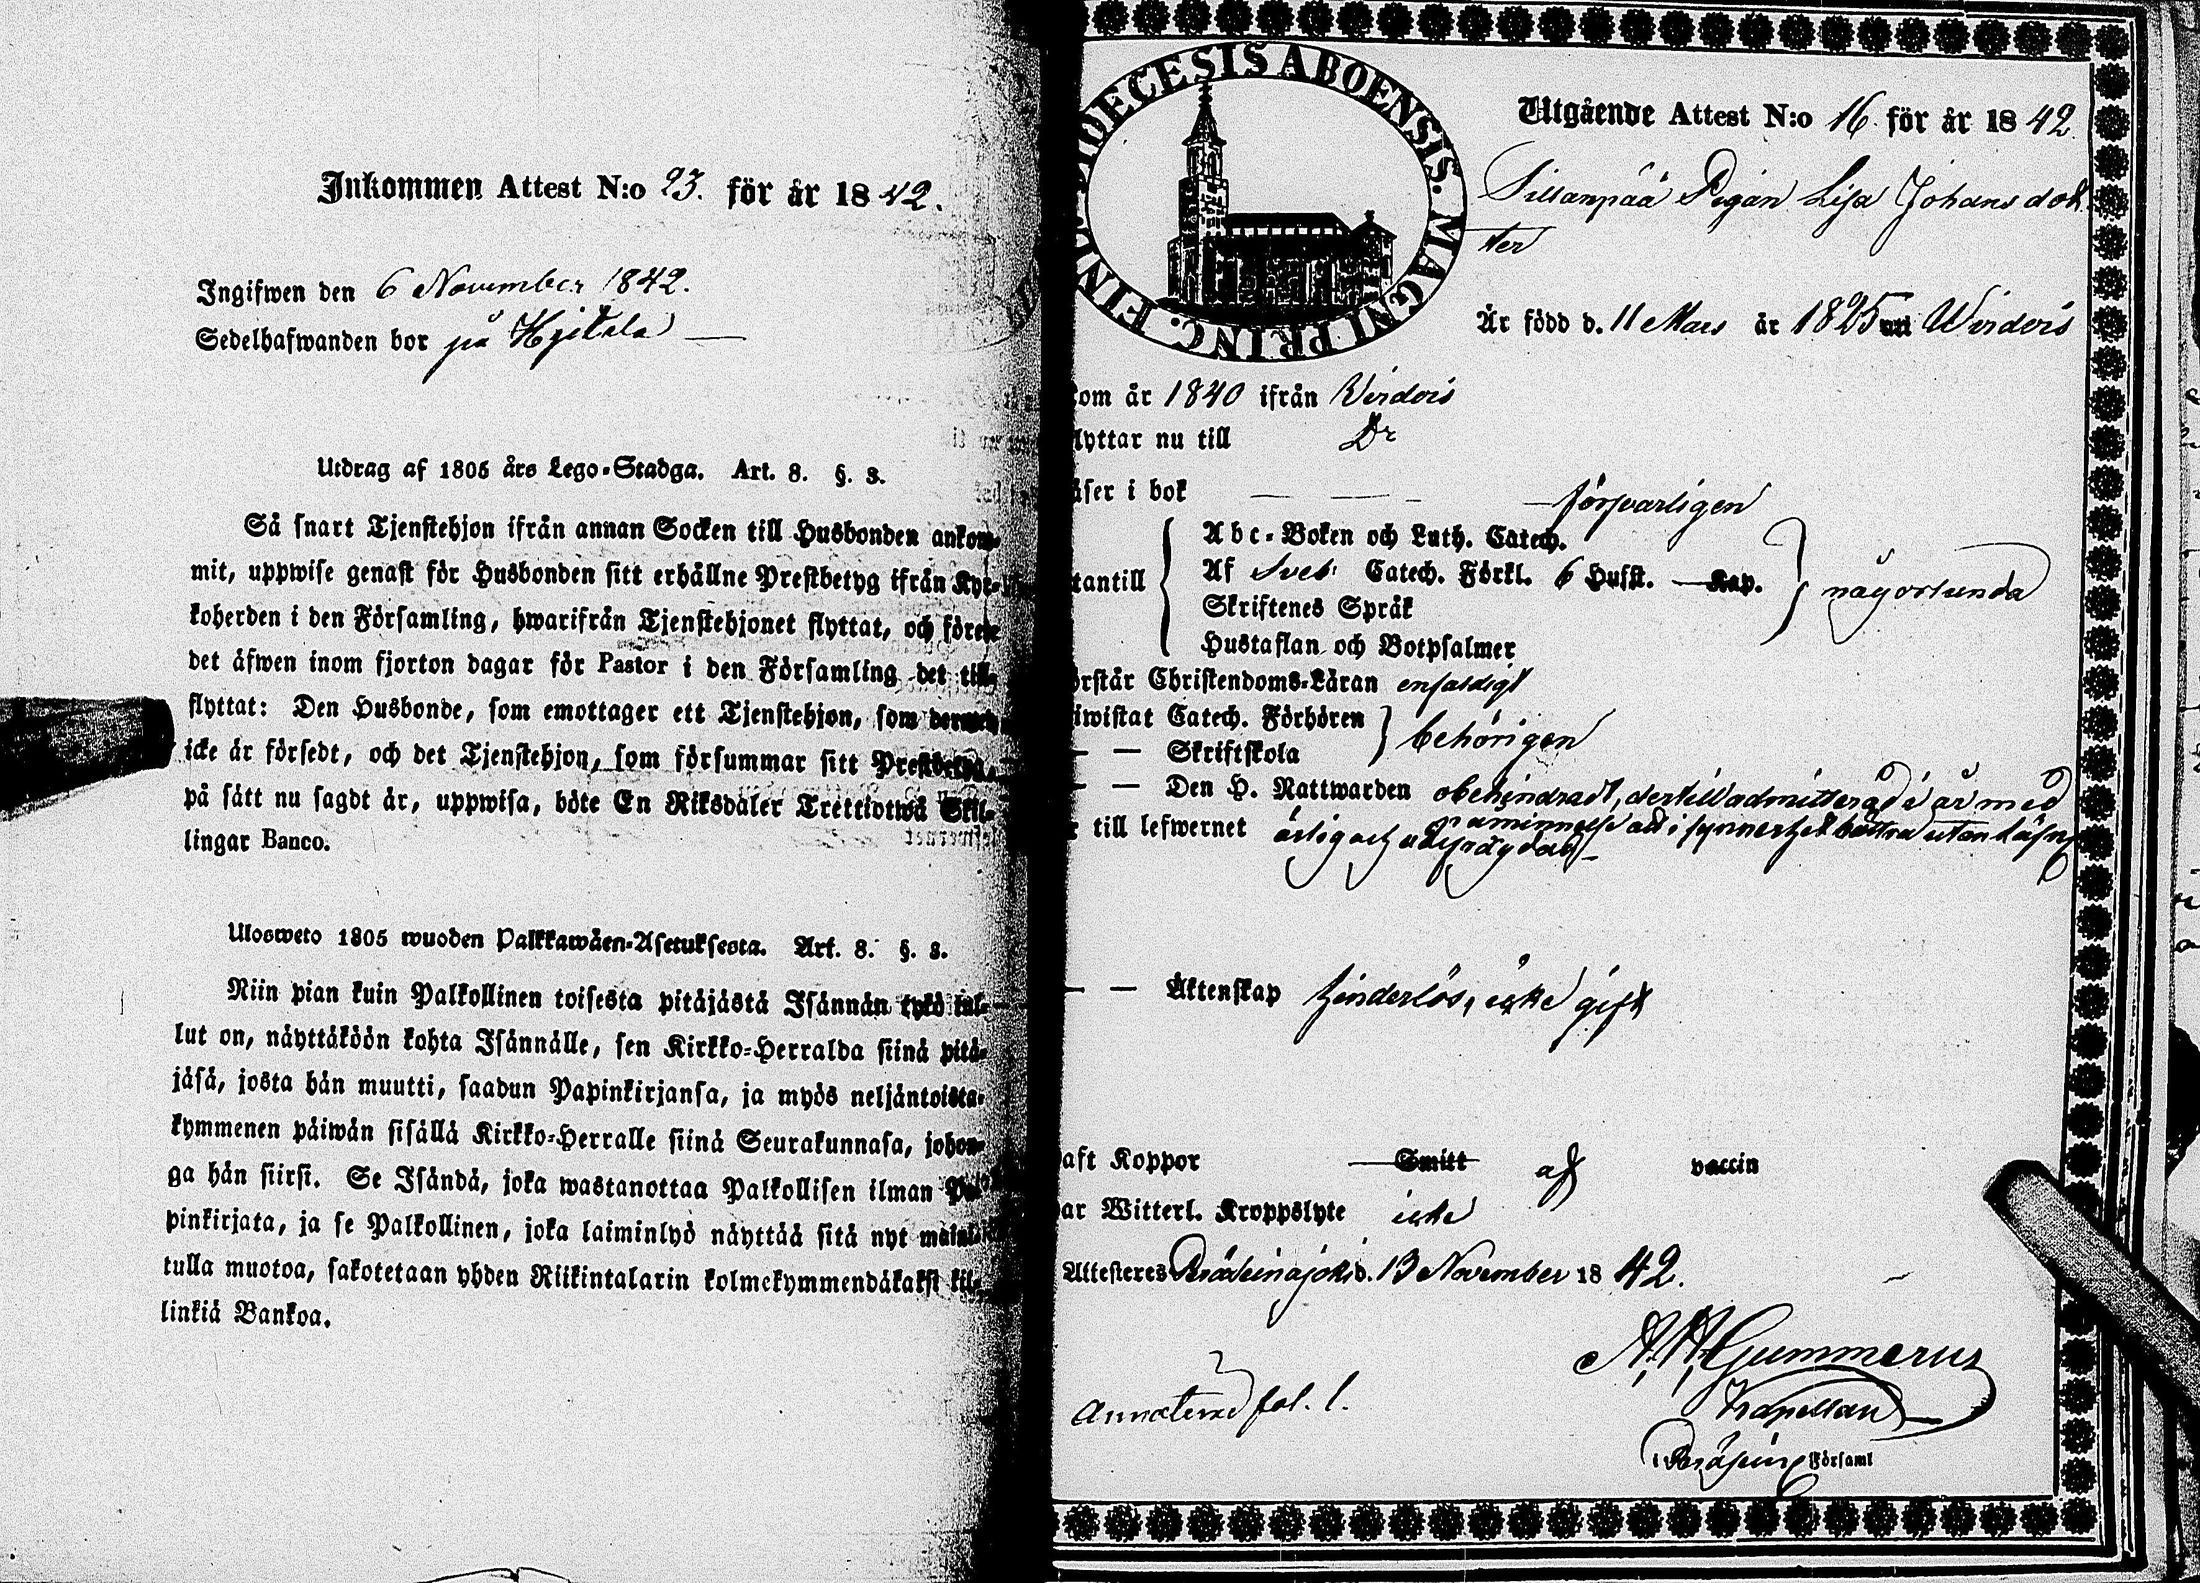 Inkommen Attest N:o 23. för år 1842.
Ingifwen den 6 November 1842.
Sedelhafwanden bor på
Utdrag af 1805 års Lego-Stadga. Art. 8. §. 3.
Så snart Tjenstehjon ifrån annan Socken till Husbonden ankom-
mit, uppwise genast för Husbonden sitt erhållne Prestbetyg ifrån Kyr-
koherden i den Församling, hwarifrån Tjenstehjonet flyttat, och förete
det äfwen inom fjorton dagar för Pastor i den Församling det till-
flyttat: Den Husbonde, som emottager ett Tjenstehjon, som dermed
icke är försedt, och det Tjenstehjon, som försummar sitt Prestbetyg,
på sätt nu sagdt är, uppwisa, böte En Riksdaler Trettiotwå Skil-
lingar Banco.
Ulosweto 1805 wuoden Palkkawäen-Asetuksesta. Art. 8. §. 3.
Niin pian kuin Palkollinen toisesta pitäjästä Isännän tykö tul-
lut on, näyttäköön kohta Isännälle, sen Kirkko-Herralda siinä pitä-
jäsä, josta hän muutti, saadun Papinkirjansa, ja myös neljäntoista-
kymmenen päiwän sisällä Kirkko-Herralle siinä Seurakunnasa, johon-
ga hän siirsi. Se Isändä, joka wastanottaa Palkollisen ilman Pa-
pinkirjata, ja se Palkollinen, joka laiminlyö näyttää sitä nyt mainitulla
tulla muotoa, sakotetaan yhden Riikintalarin kolmekymmendäkaksi kil-
linkiä Bankoa.
DIOECESIS ABOENSIS. MAGNI PRINC. FINL.
Utgående Attest N:o 16 för år 1842
Sillanpää Pigan Lisa Johansdot
ter
Är född d. 11 Mars år 1825 uti Wirdois
kom år 1840 ifrån Virdois
flyttar nu till Do
läser i bok — — — försvarligen
Abc-Boken och Luth. Catech.
utantill Af Sveb. Catech. Förkl. 6 Hufst. — Kap. någorlunda
Skriftenes Språk
Hustaflan och Botpsalmer
förstår Christendoms-Läran enfaldigt
biwistat Catech. Förhören behörigen
— — Skriftskola
— — Den H. Nattwarden obehindradt, dertill admitterad är med
påminnelse att i synnerhet bättra utanläsn
är till lefwernet ärlig och
— — Äktenskap hinderlös, icke gift
haft Koppor — Smitt af vaccin
har Witterl. Kroppslyte icke
Attesteres Peräseinäjoki d. 13 November 1842.
Gummerus
Kapellan
Annoterad fol. 1.
i Peräsein Församl